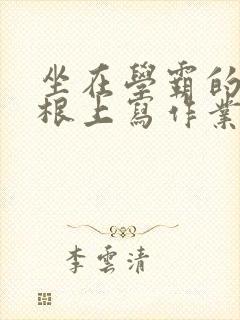 坐在學霸的
根上寫作業
李雲清